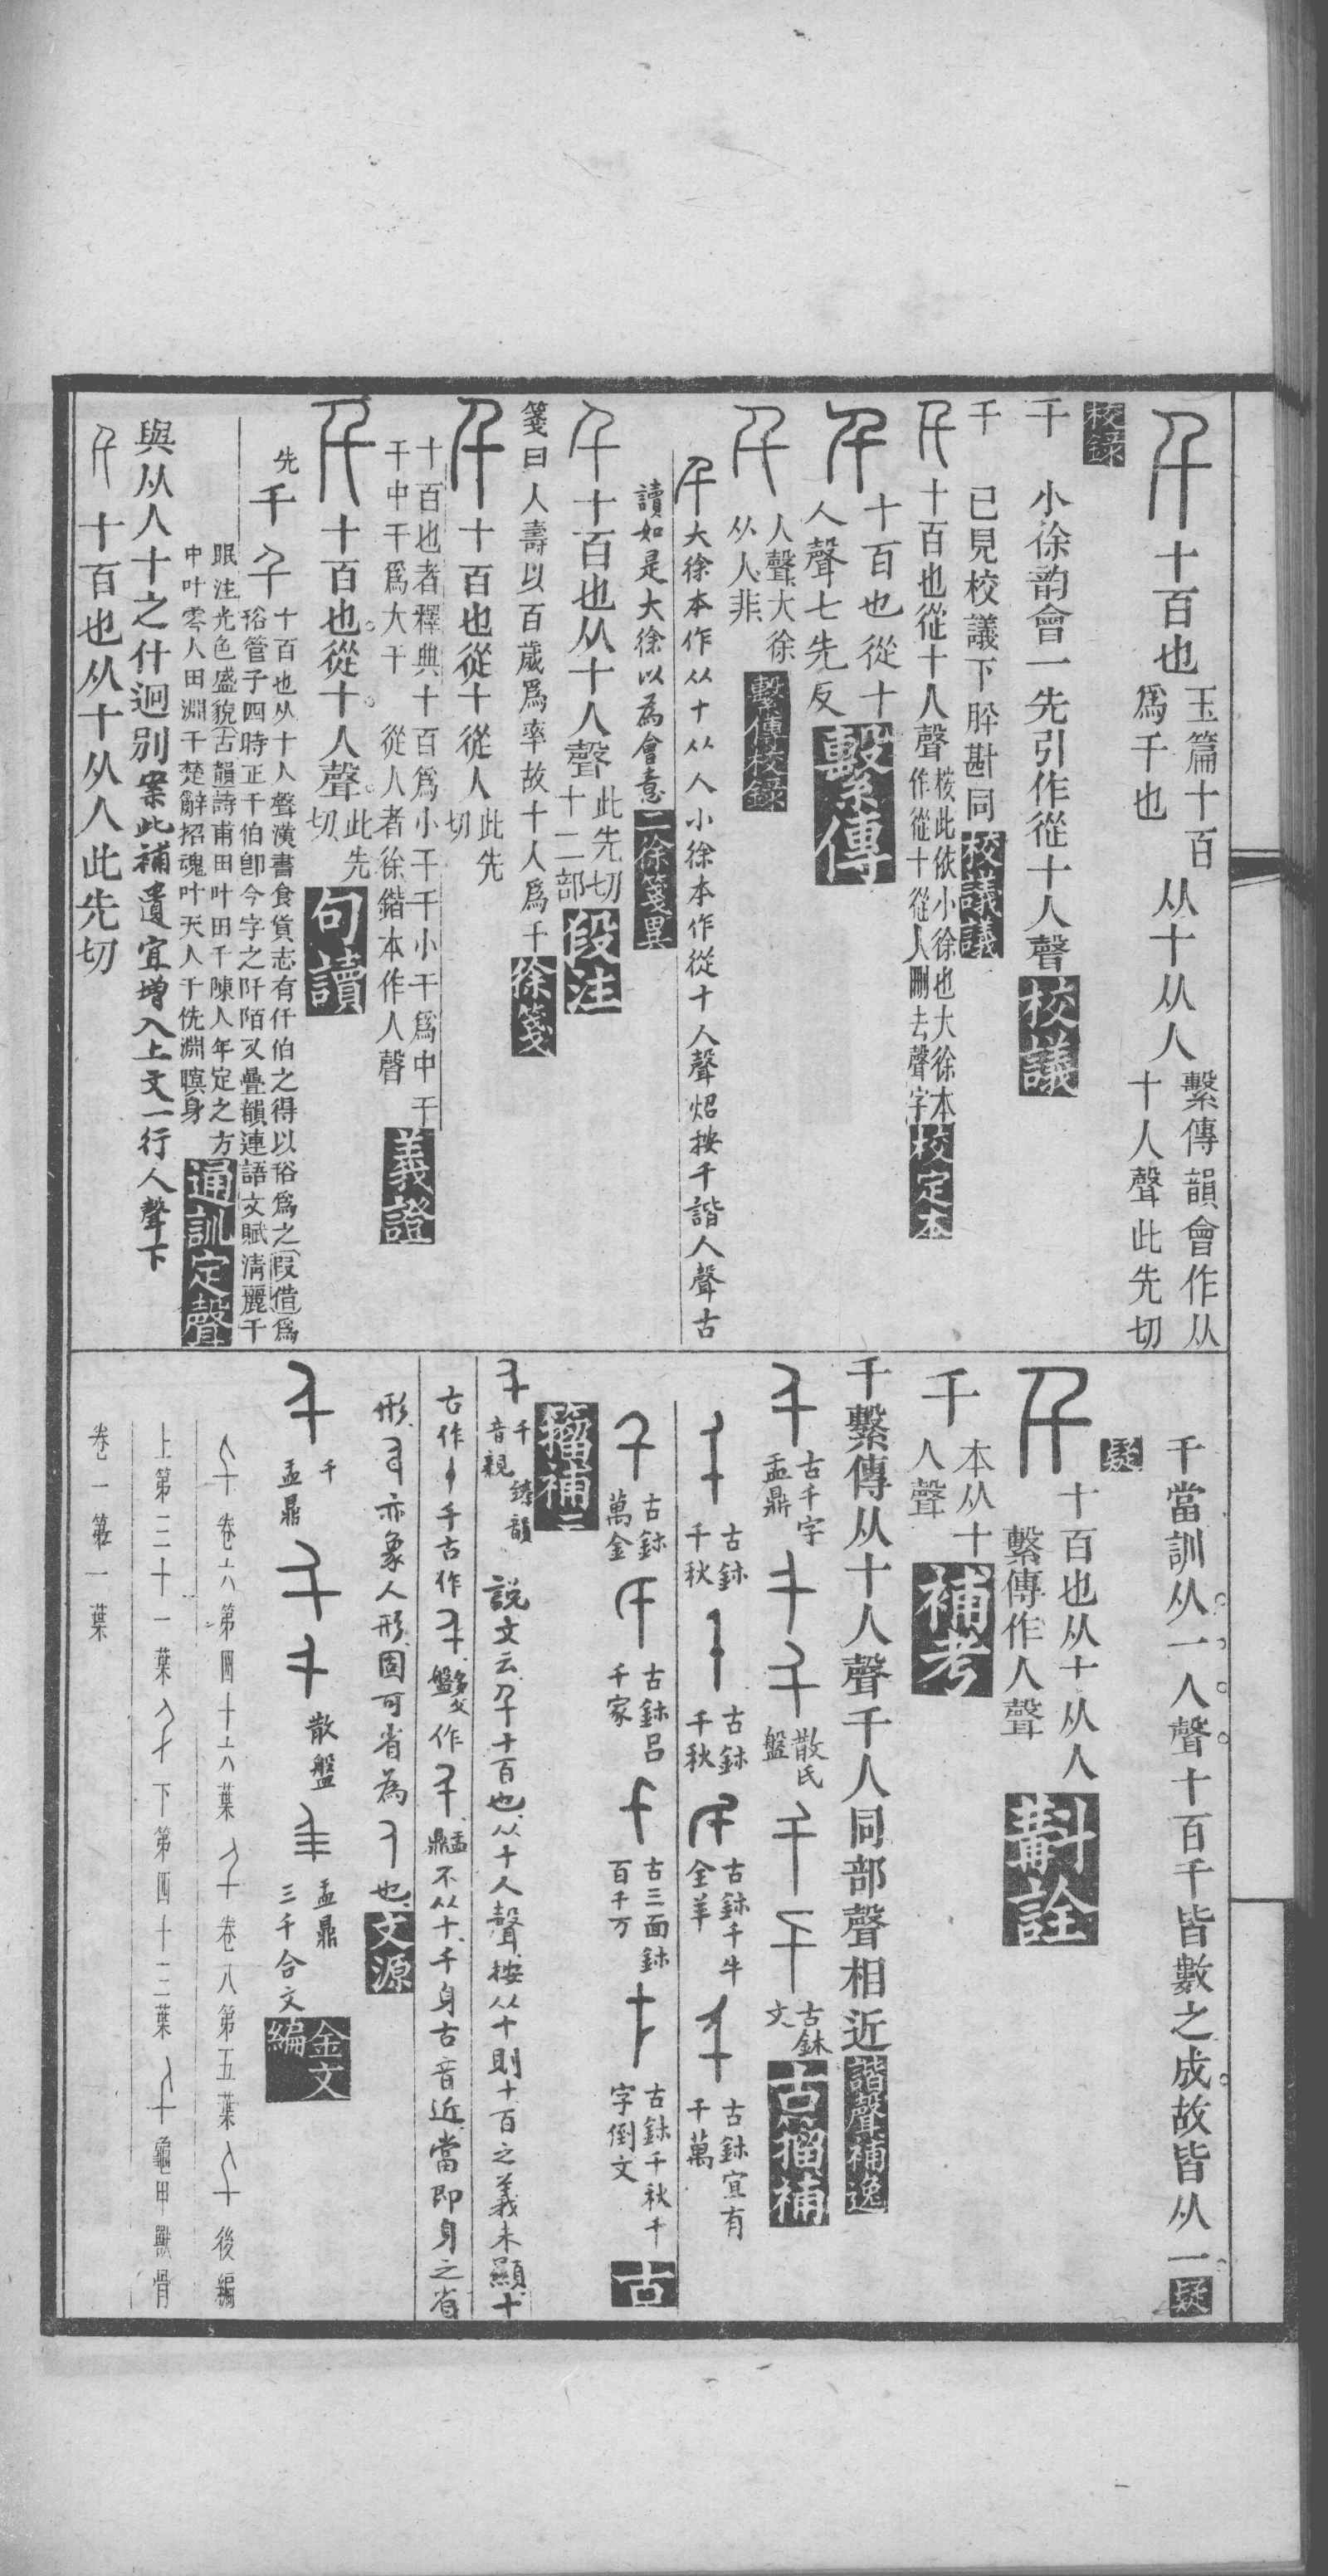 十百也玉篇十百
爲千也从十从人繫傳韻會作从
十人聲此先切
校錄
千 小徐韵會一先引作從十人聲校議
千 已見校議下胖斠同校議議
十百也從十人聲桉此依小徐也大徐本
作從十從人刪去聲字校定本
十百也從十
人聲七先反繫傳
人聲大徐
从人非繫傳校錄
大徐本作从十从人小徐本作從十人聲炤按千諧人聲古
讀如是大徐以為會意二徐箋異
十百也从十人聲此先切
十二部段注
箋曰人壽以百歲爲率故十人爲千徐箋
十百也從十從人此先
切
十百也者釋典十百爲小千千小千爲中千
千中千爲大千 從人者徐鍇本作人聲義證
十百也從十人聲此先
切句讀
先
千 十百也从十人聲漢書食貨志有仟伯之得以俗爲之叚借爲
俗管子四時正千伯卽今字之阡陌又疊韻連語文賦清麗千
眠注光色盛貌古韻詩甫田叶田千陳人年定之方
中叶零人田淵千楚辭招魂叶天人千侁淵瞑身通訓定聲
與从人十之什迥別案此補遺宜增入上文一行人聲下
十百也从十从人此先切
千當訓从一人聲十百千皆數之成故皆从一疑
疑
十百也从十从人
繫傳作人聲斠詮
千 本从十
人聲補考
千繫傳从十人聲千人同部聲相近諧聲補逸
古千字
盂鼎 散氏
盤 古鉨
文古籀補
古鉨
千秋 古鉨
千秋 古鉨千牛
全羊 古鉨宜有
千萬
古鉨
萬金 古鉨呂
千家 古三面鉨
百千万 古鉨千秋千
字倒文 古
籀補三
千 臻韻
音親 說文云十百也从十人聲按从十則十百之義未顯十
古作 千古作 盤 作 盂
鼎不从十千身古音近當即身之省
形 亦象人形固可省為 也文源
千
盂鼎 散盤 盂鼎
三千合文金文
編
卷六第四十六葉 卷八第五葉 後編
上第三十一葉 下第四十三葉 龜甲獸骨
卷一第一葉